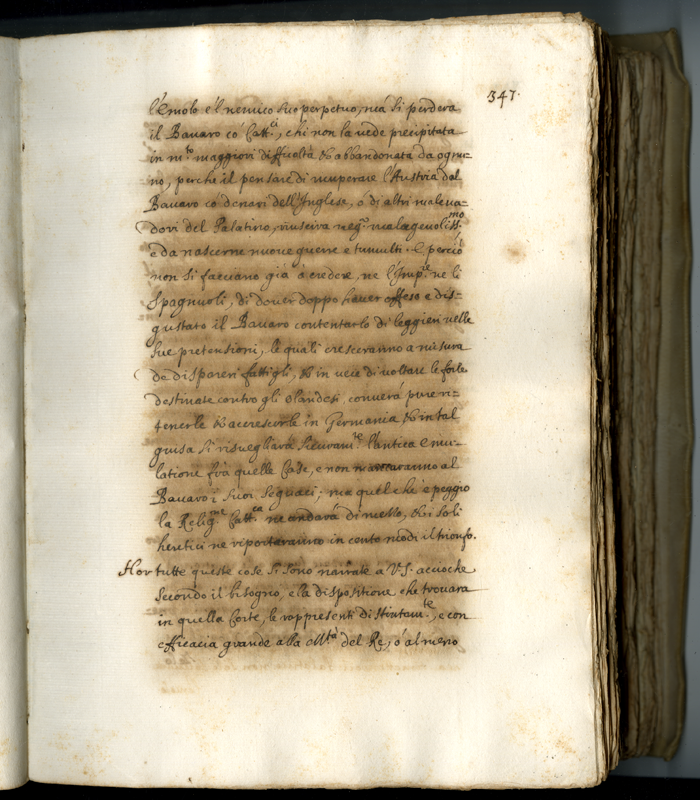 347.
l'emolo e'l nemico suo perpetuo, mà si perderà
il Bavaro cõ Catt.ci, chi non la vede precipitata
in m.to maggiori difficoltà & abbandonata da ognu=
no, perche il pensare di ricuperare l'Austria dal
Bavaro cõ denari dell'Inglese, ò di altri
dovi del Palatino, riusciva neg.o malagevoliss.mo
e da nascerne nuove guerre e tumulti. E perciò
non si facciano già à credere, ne l'Imp.re ne li
Spagnuoli, di dover doppo haver offeso e dis=
gustato il Bavaro contentarlo di leggieri nelle
sue pretensioni, le quali cresceranno a misura
de dispareri fattigli, & in vece di voltare le forze
destinate contro gli Olandesi, converrà
tenerle & accrescerle in Germania & in tal
guisa si risvegliarà sicuram.te l'antica emu=
latione frà quelle Case, e non mancaranno al
Bavaro i suoi seguaci; ma quel che è peggio
la Relig.ne Catt.ca ne andarà di mezzo, & i soli
heretici ne riportaranno in cento modi il trionfo.
Hor tutte queste cose si sono narrate a V.S. accioche
secondo il bisogno, e la dispositione che trovarà
in quella Corte, le rappresenti distintam.te, e con
efficacia grande alla M.tà del Re, ò al meno